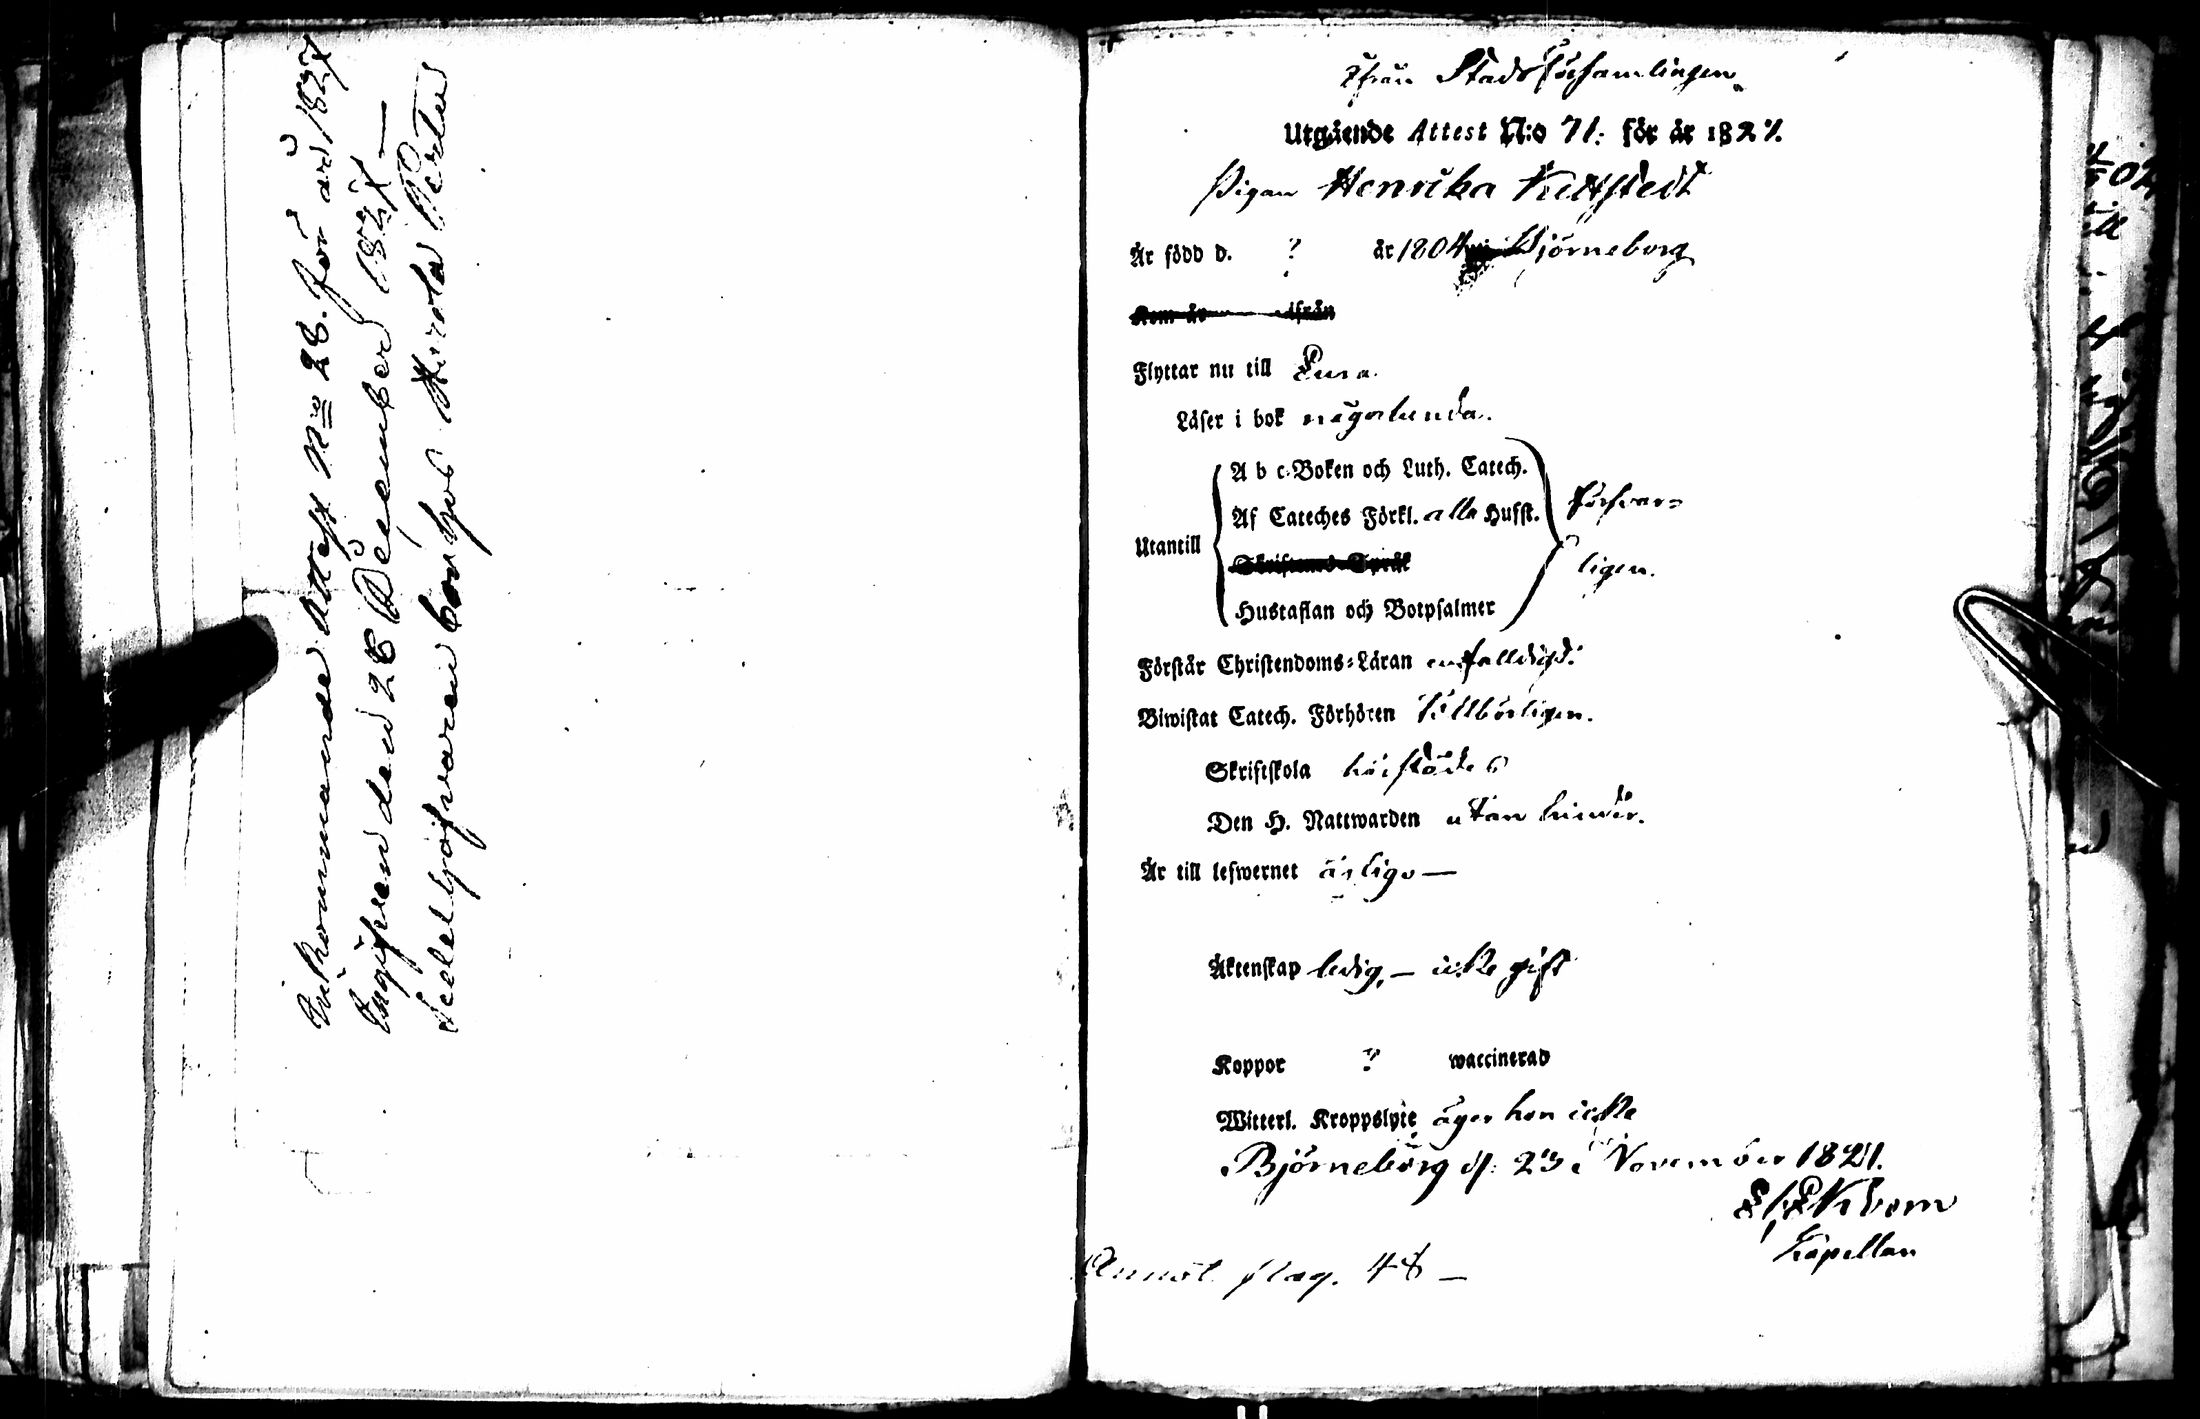 Inkommande Attest Nro 28. för år 1827
Ingifven den 28 December 1827 —
bonhos Hirola Pertus
ifrån Stads Församlingen
Utgående Attest N:o 71. för år 1827.
Pigan Henrika
Är född d. ? år 1804 Björneborg
Kom år ifrån
Flyttar nu till Eura.
Läser i bok någorlunda.
Utantill
A b c-Boken och Luth. Catech.
Af Cateches Förkl. alla Husst.
Skriftenes Språk
Hustaflan och Botpsalmer
försvar-
ligen.
Förstår Christendoms-Läran enfalldigt.
Biwistat Catech. Förhören tillbörligen.
Skriftskola
Den H. Nattwarden utan hinder.
Är till lefwernet ärliga —
Äktenskap ledig, — icke gift
Koppor ? waccinerad
Witterl. Kroppslyte äger hon icke
Björneborg d. 23 November 1827.
Kapellan
Annot. pag. 48 —